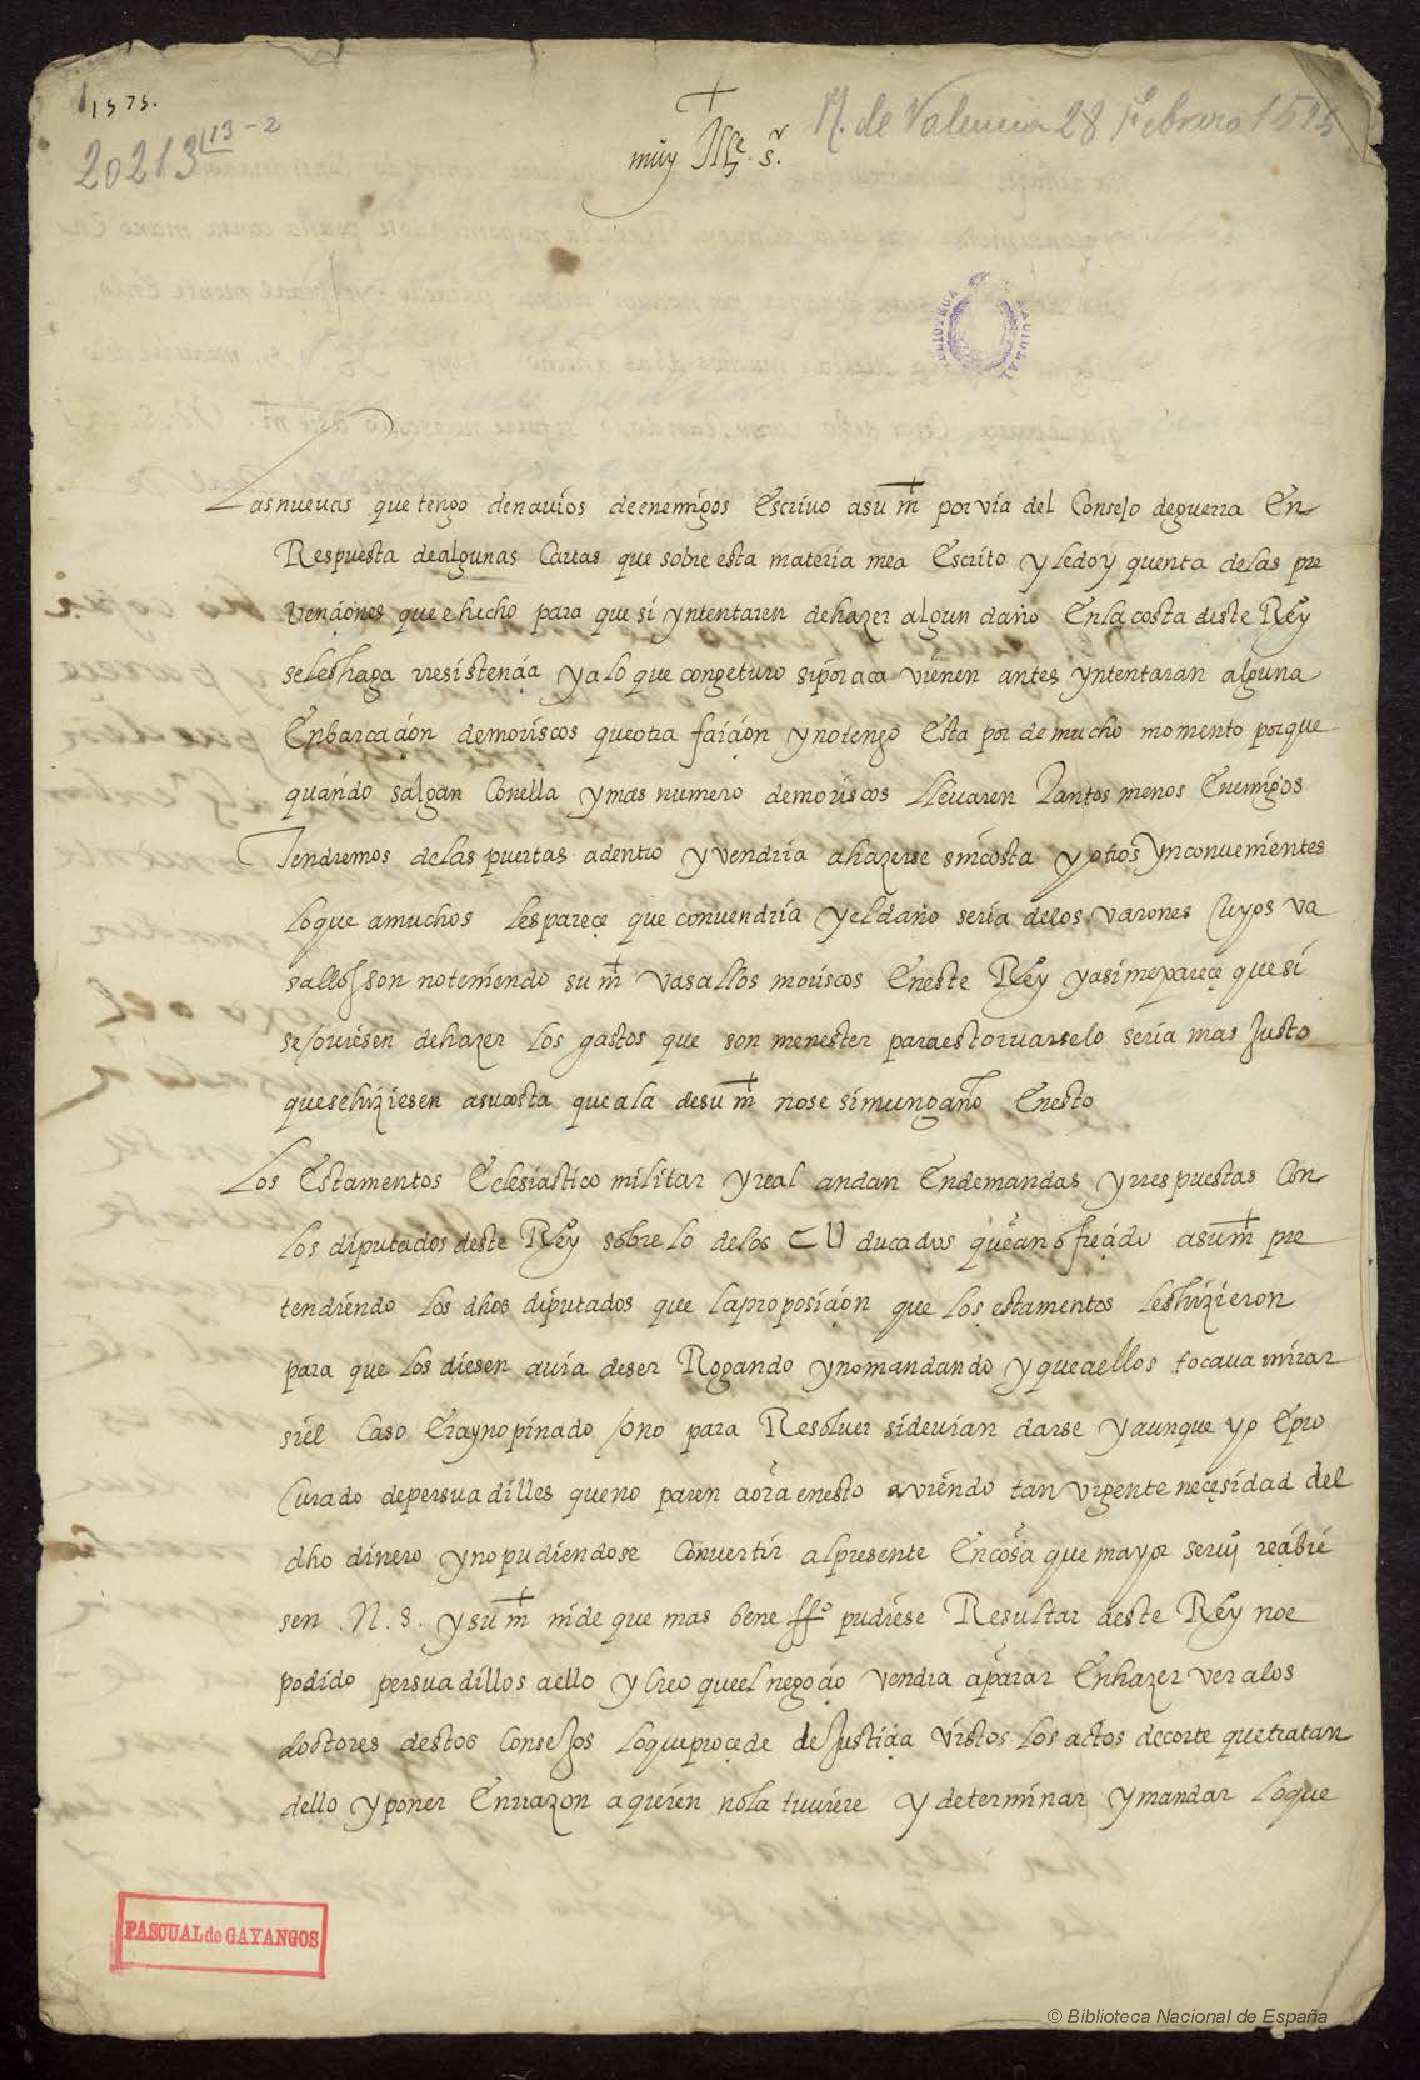 1575.
20213 113-2
R. de Valencia 28 Febrero 1575
muy Ille. sr.
BIBLIOTECA NACIONAL
Las nuevas que tengo de navios de enemigos escrivo a su m por via del Consejo de guerra En
Respuesta de algunas Cartas que sobre esta materia me a Escrito y le doy quenta de las pre
venciones que e hecho para que si yntentaren de hazer algun daño En la costa deste Rey
se les haga rresistencia y a lo que congeturo si por aca vienen antes yntentaran alguna
Enbarcacion de moriscos que otra faicion y no tengo Esta por de mucho momento porque
quando salgan Con ella y mas numero de moriscos llevaren Tantos menos Enemigos
Tendremos de las puertas adentro y vendria a hazerse sin costa y otros ynconvenientes
lo que a muchos les parece que convendria y el daño seria de los varones Cuyos va
sallos son no teniendo su m vasallos moriscos En este Rey y asi me parece que si
se oviesen de hazer los gastos que son menester para estorvarselo seria mas Justo
que se hiziesen a su costa que a la de su m no se si me engaño En esto
Los Estamentos Eclesiastico militar y real andan En demandas y rrespuestas Con
los diputados deste Rey sobre lo de los CU ducados que an ofrecido a su m pre
tendiendo los dhos diputados que la proposicion que los estamentos les hizieron
para que los diesen avia de ser Rogando y no mandando y que a ellos tocava mirar
si el Caso Era ynopinado o no para Resolver si devian darse y aunque yo E pro
Curado de persuadilles que no paren aora en esto aviendo tan vrgente necesidad del
dho dinero y no pudiendose Convertir al presente En cosa que mayor servi recibie
sen N. S. y su m ni de que mas beneffo pudiese Resultar a este Rey no e
podido persuadillos a ello y Creo que el negocio vendra a parar En hazer ver a los
doctores destos Consejos lo que procede de Justicia vistos los actos de corte que tratan
dello y poner En rrazon a quien no la tuviere y determinar y mandar lo que
PASCUAL de GAYANGOS
© Biblioteca Nacional de España